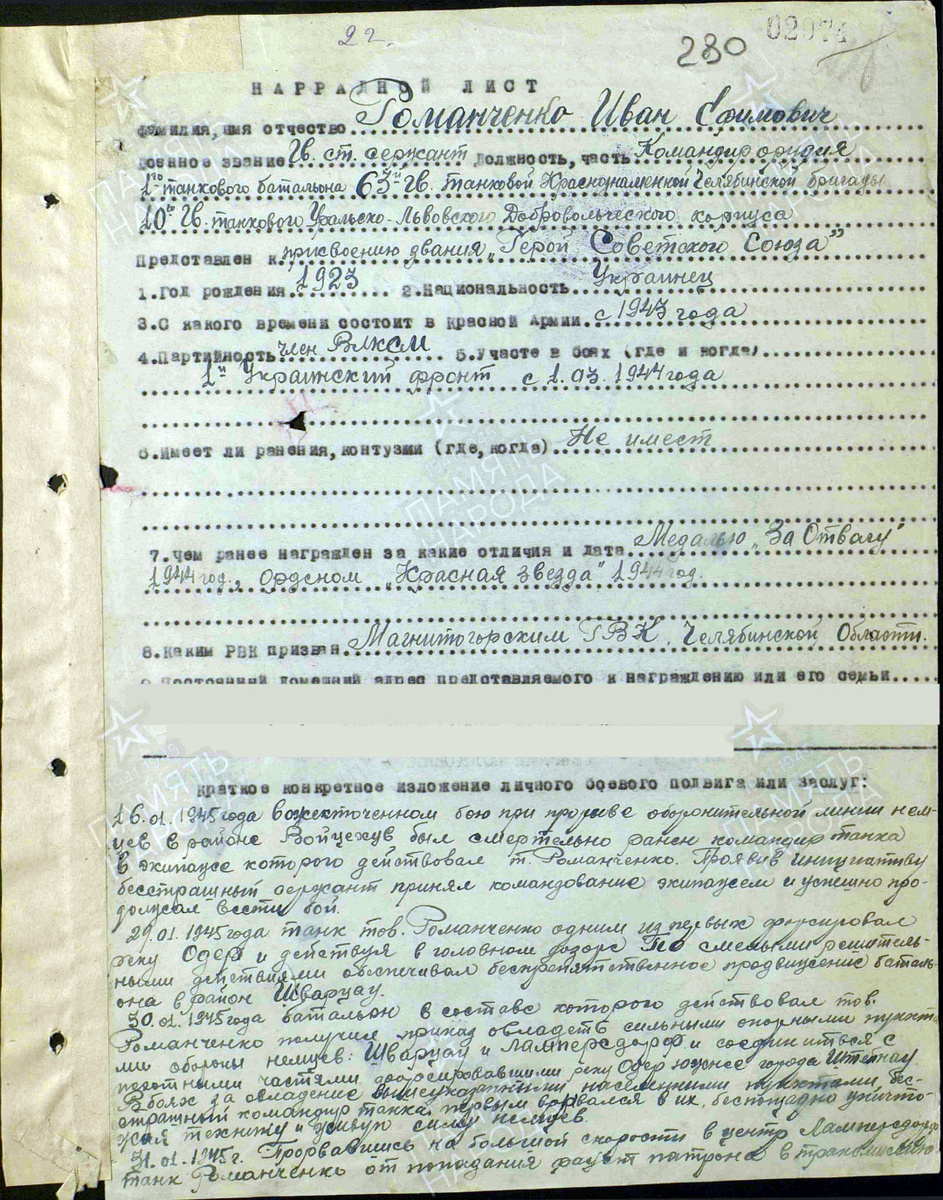 22.
280
02074
НАГРАДНОЙ ЛИСТ
Фамилия, имя отчество Романченко Иван Ефимович
Военное звание Гв. ст. сержант Должность, часть Командир орудия
2го танкового батальона 63й Гв. танковой Краснознаменной Челябинской бригады
10го Гв. танкового Уральско-Львовского Добровольческого корпуса
Представлен к присвоению звания „Герой Советского Союза”
1.Год рождения 1923 2.Национальность Украинец
3.С какого времени состоит в Красной Армии с 1943 года
4.Партийность член ВЛКСМ 5.Участе в боях (где и когда)
1й Украинский фронт с 1.03.1944 года
6.Имеет ли ранения,контузии (где,когда) Не имеет
7.чем ранее награжден за какие отличия и дата Медалью „За Отвагу”
1944 год., Орденом „Красная звезда” 1944 год.
8.Каким РВК призван Магнитогорским ГВК, Челябинской Области.
9.Постоянный домашний адрес представляемого к награждению или его семьи
Краткое конкретное изложение личного боевого подвига или заслуг:
26.01.1945 года в ожесточенном бою при прорыве оборонительной линии нем-
цев в районе Войцехув был смертельно ранен командир танка
в экипаже которого действовал т. Романченко. Проявив инициативу
бесстрашный сержант принял командование экипажем и успешно про-
должал вести бой.
29.01.1945 года танк тов. Романченко одним из первых форсировал
реку Одер и действуя в головном дозоре смелыми решитель-
ными действиями обеспечивал беспрепятственное продвижение баталь-
она в район Шварцау.
30.01.1945 года батальон в составе которого действовал тов.
Романченко получил приказ овладеть сильными опорными пункта-
ми обороны немцев: Шварцау и Ламперсдорф и соединиться с
пехотными частями форсировавшими реку Одер южнее города Штейнау
В боях за овладение вышеуказанными населенными пунктами, бес-
страшный командир танка первым ворвался в их, беспощадно уничто-
жая технику и живую силу немцев.
31.01.1945г. Прорвавшись на большой скорости в центр Ламперсдорф
танк Романченко от попадания фауст патрона в трансмиссию